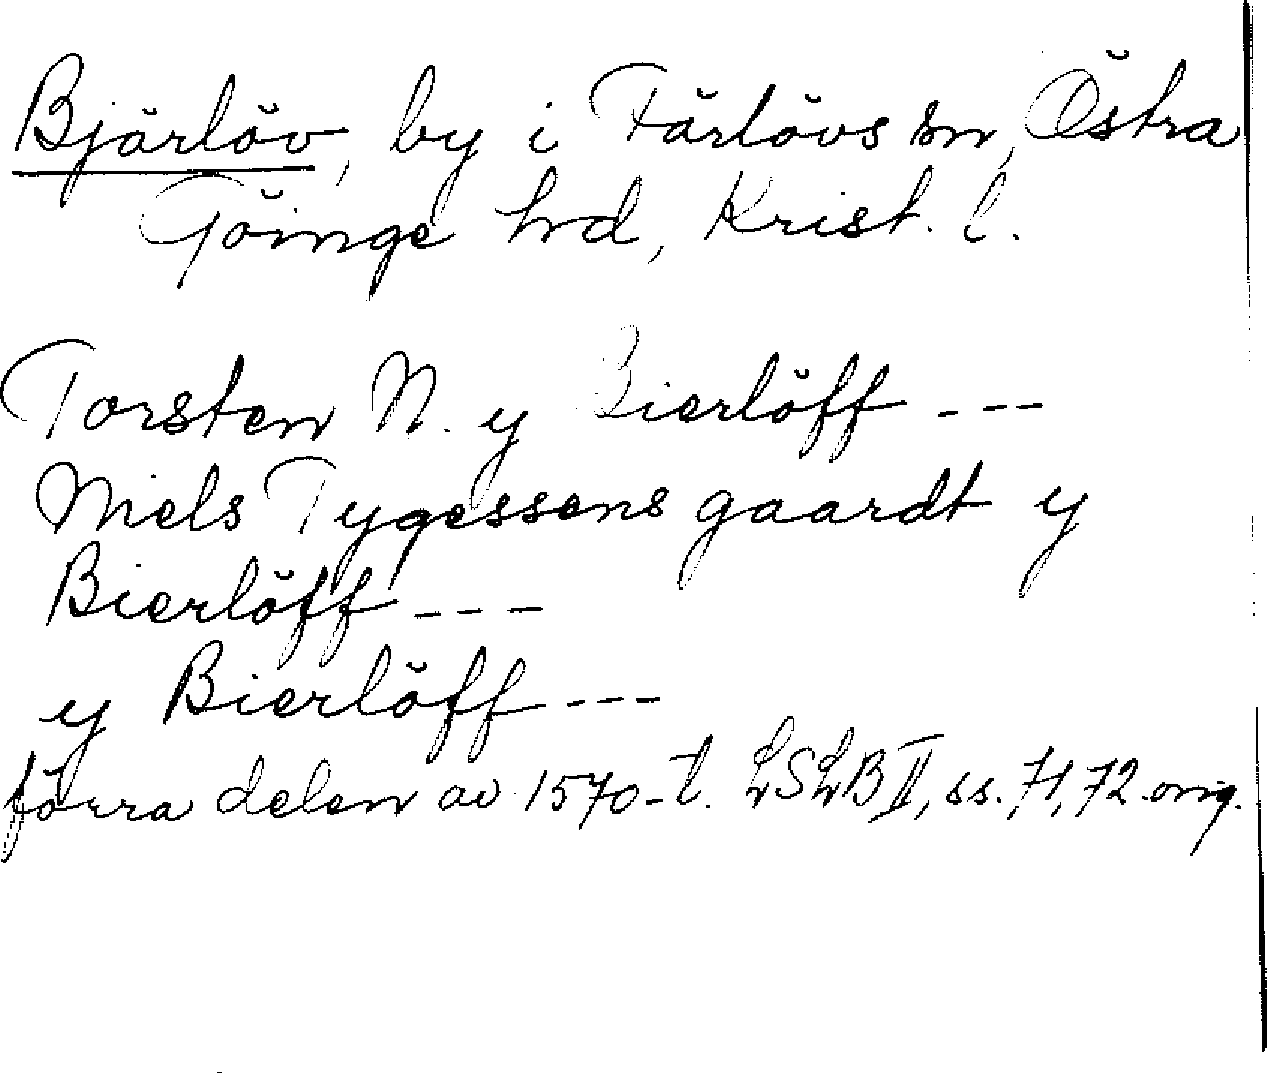 Bjärlöv, by i Färlövs sn, Östra
Göinge hrd, Krist. l.
Torsten N. y Bierlöff ---
Niels Tygessens gaardt y
Bierlöff ---
y Bierlöff ---
förra delen av 1570-t. LSLB II, ss. 71, 72. orig.